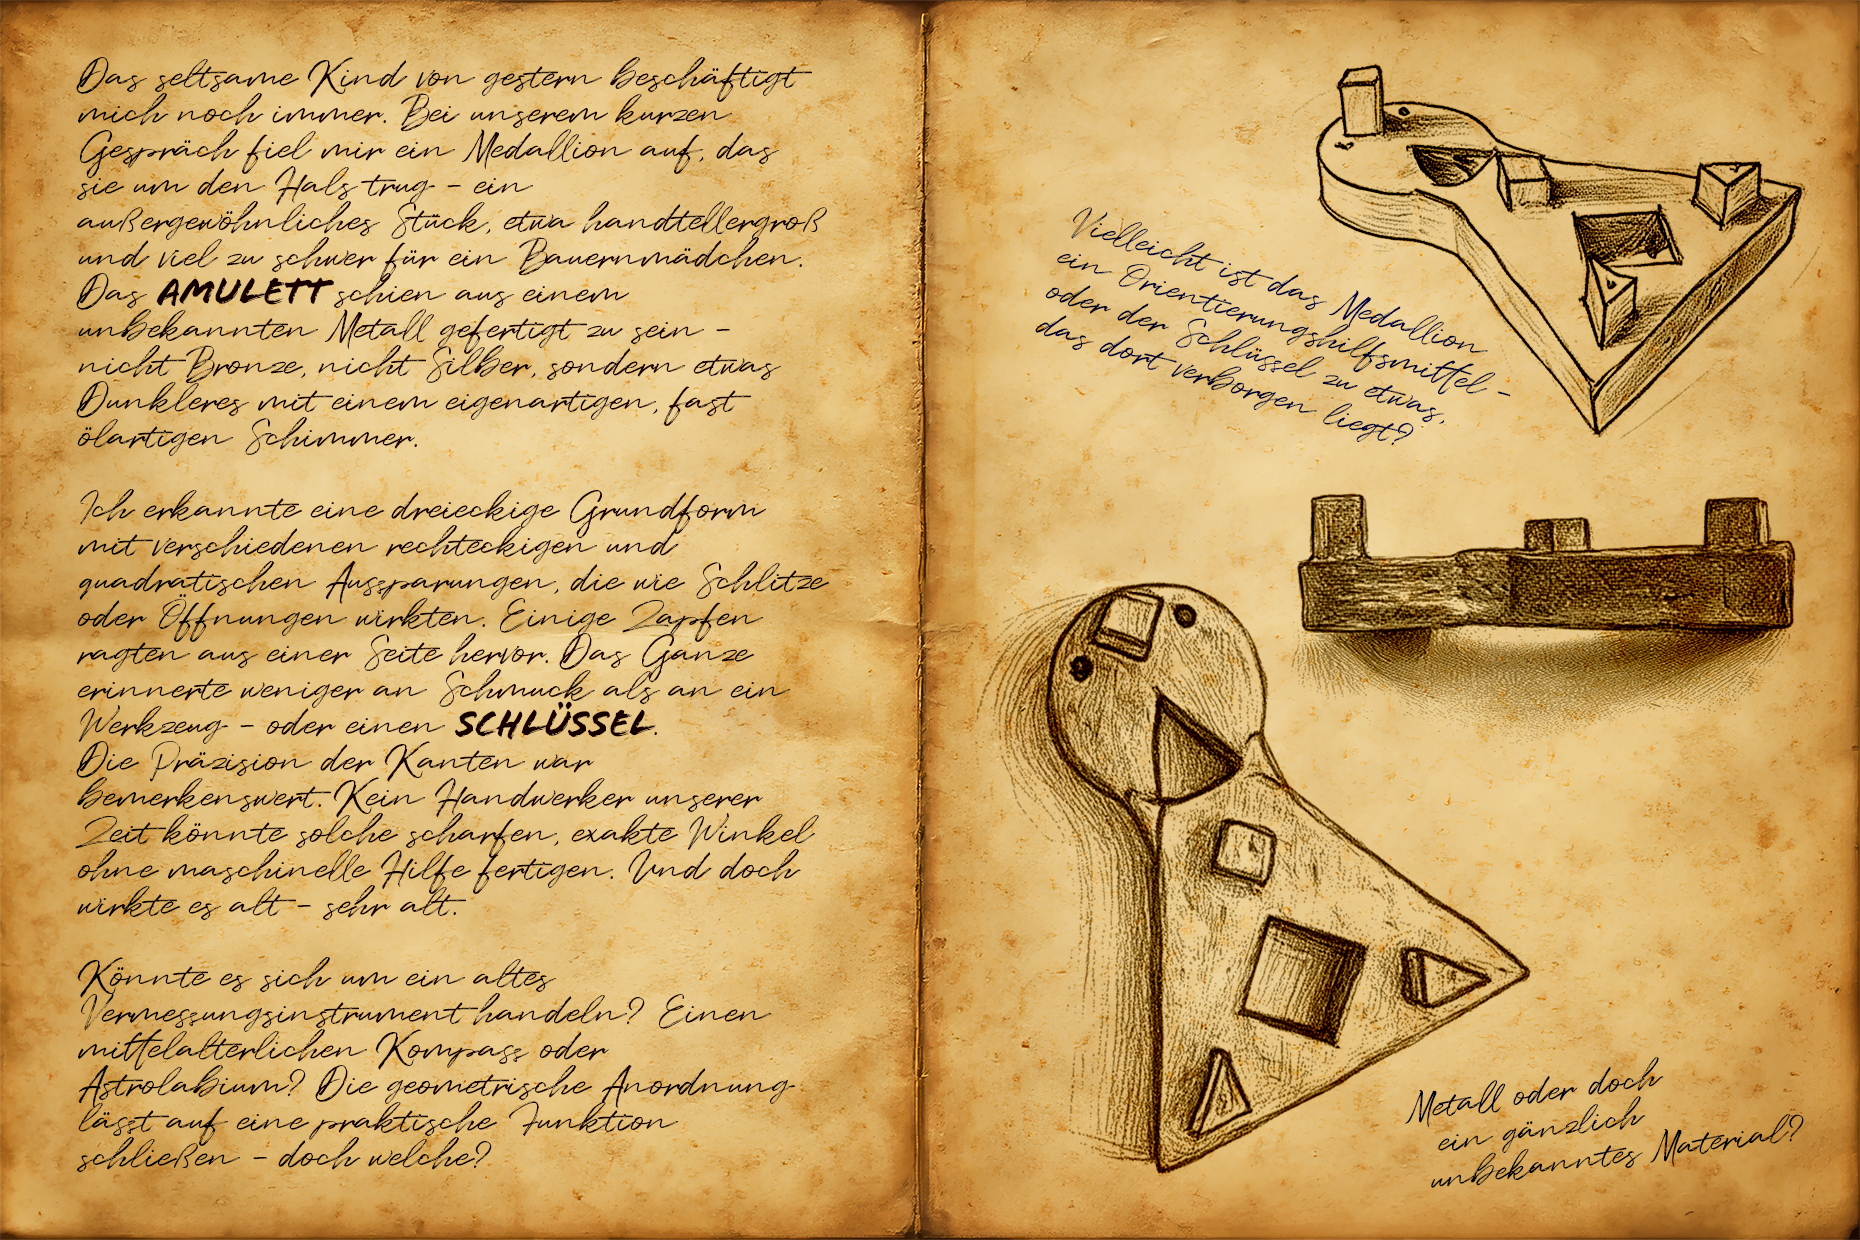 Das seltsame Kind von gestern beschäftigt
mich noch immer. Bei unserem kurzen
Gespräch fiel mir ein Medallion auf, das
sie um den Hals trug – ein
außergewöhnliches Stück, etwa handtellergroß
und viel zu schwer für ein Bauernmädchen.
Das AMULETT schien aus einem
unbekannten Metall gefertigt zu sein –
nicht Bronze, nicht Silber, sondern etwas
Dunkleres mit einem eigenartigen, fast
ölartigen Schimmer.
Ich erkannte eine dreieckige Grundform
mit verschiedenen rechteckigen und
quadratischen Aussparungen, die wie Schlitze
oder Öffnungen wirkten. Einige Zapfen
ragten aus einer Seite hervor. Das Ganze
erinnerte weniger an Schmuck als an ein
Werkzeug – oder einen SCHLÜSSEL.
Die Präzision der Kanten war
bemerkenswert. Kein Handwerker unserer
Zeit könnte solche scharfen, exakte Winkel
ohne maschinelle Hilfe fertigen. Und doch
wirkte es alt – sehr alt.
Könnte es sich um ein altes
Vermessungsinstrument handeln? Einen
mittelalterlichen Kompass oder
Astrolabium? Die geometrische Anordnung
lässt auf eine praktische Funktion
schließen – doch welche?
Vielleicht ist das Medallion
ein Orientierungshilfsmittel –
oder der Schlüssel zu etwas,
das dort verborgen liegt?
Metall oder doch
ein gänzlich
unbekanntes Material?